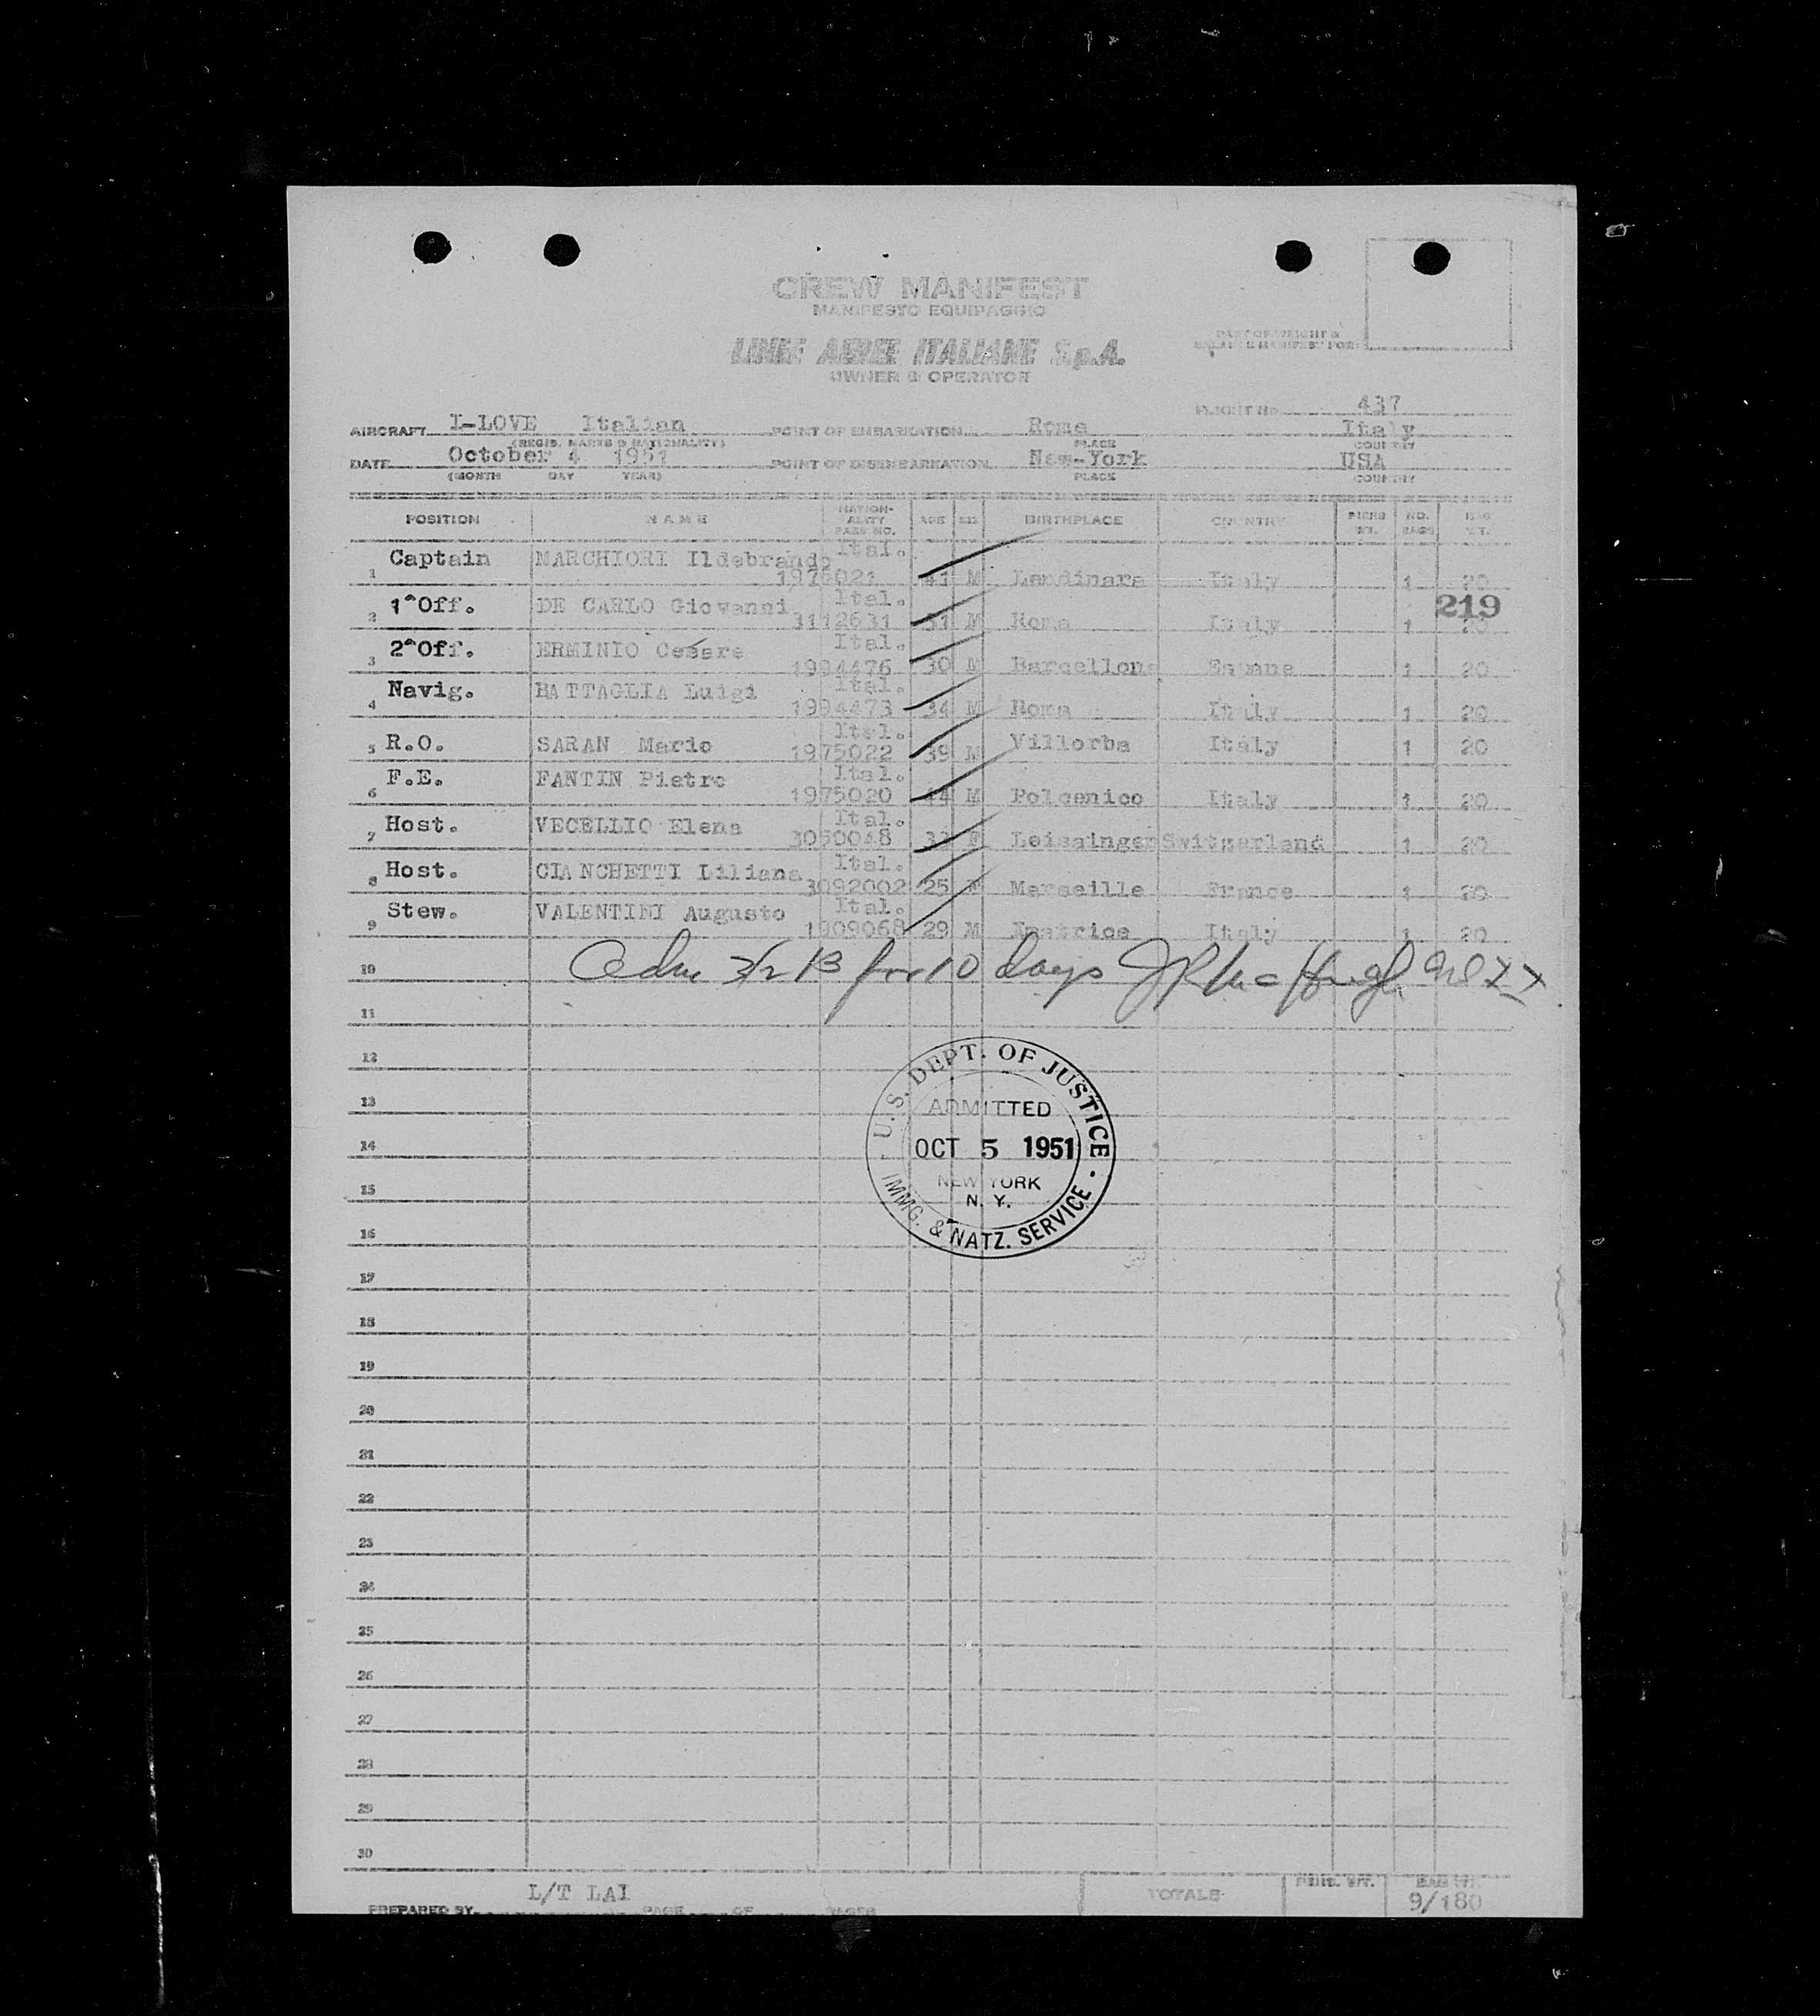 CREW MANIFEST
MANIFESTO EQUIPAGGIO
LINEE AEREE ITALIANE S.p.A.
OWNER & OPERATOR
PART OF WEIGHT &
BALANCE MANIFEST FOR
FLIGHT No. 437
AIRCRAFT I-LOVE Italian POINT OF EMBARKATION Roma Italy
(REGIS. MARKS & NATIONALITY) PLACE COUNTRY
DATE October 4 1951 POINT OF DISEMBARKATION New-York USA
(MONTH DAY YEAR) PLACE COUNTRY
POSITION NAME NATION-ALITY PASS NO. AGE SEX BIRTHPLACE COUNTRY PERS WT. NO. BAGS BAG WT.
1 Captain MARCHIORI Ildebrando Ital. 1975021 41 M Lendinara Italy 1 20
219
2 1^Off. DE CARLO Giovanni Ital. 3112631 31 M Roma Italy 1 20
3 2^Off. ERMINIO Cesare Ital. 1994476 30 M Barcellona Espane 1 20
4 Navig. BATTAGLIA Luigi Ital. 1994473 34 M Roma Italy 1 20
5 R.O. SARAN Mario Ital. 1975022 39 M Villorba Italy 1 20
6 F.E. FANTIN Pietro Ital. 1975020 44 M Polcenico Italy 1 20
7 Host. VECELLIO Elena Ital. 3050048 33 F Leissingen Switzerland 1 20
8 Host. CIANCHETTI Liliana Ital. 3092002 25 F Marseille France 1 20
9 Stew. VALENTINI Augusto Ital. 1909068 29 M Italy 1 20
10 Adm 3/2 B for 10 days J R McHugh
11
12
13
14
15
16
17
18
19
20
21
22
23
24
25
26
27
28
29
30
U.S. DEPT. OF JUSTICE
ADMITTED
OCT 5 1951
NEW YORK
N. Y.
IMMG. & NATZ. SERVICE
L/T LAI
PREPARED BY PAGE OF PAGES
TOTALS PERS. WT. BAG WT.
9/180